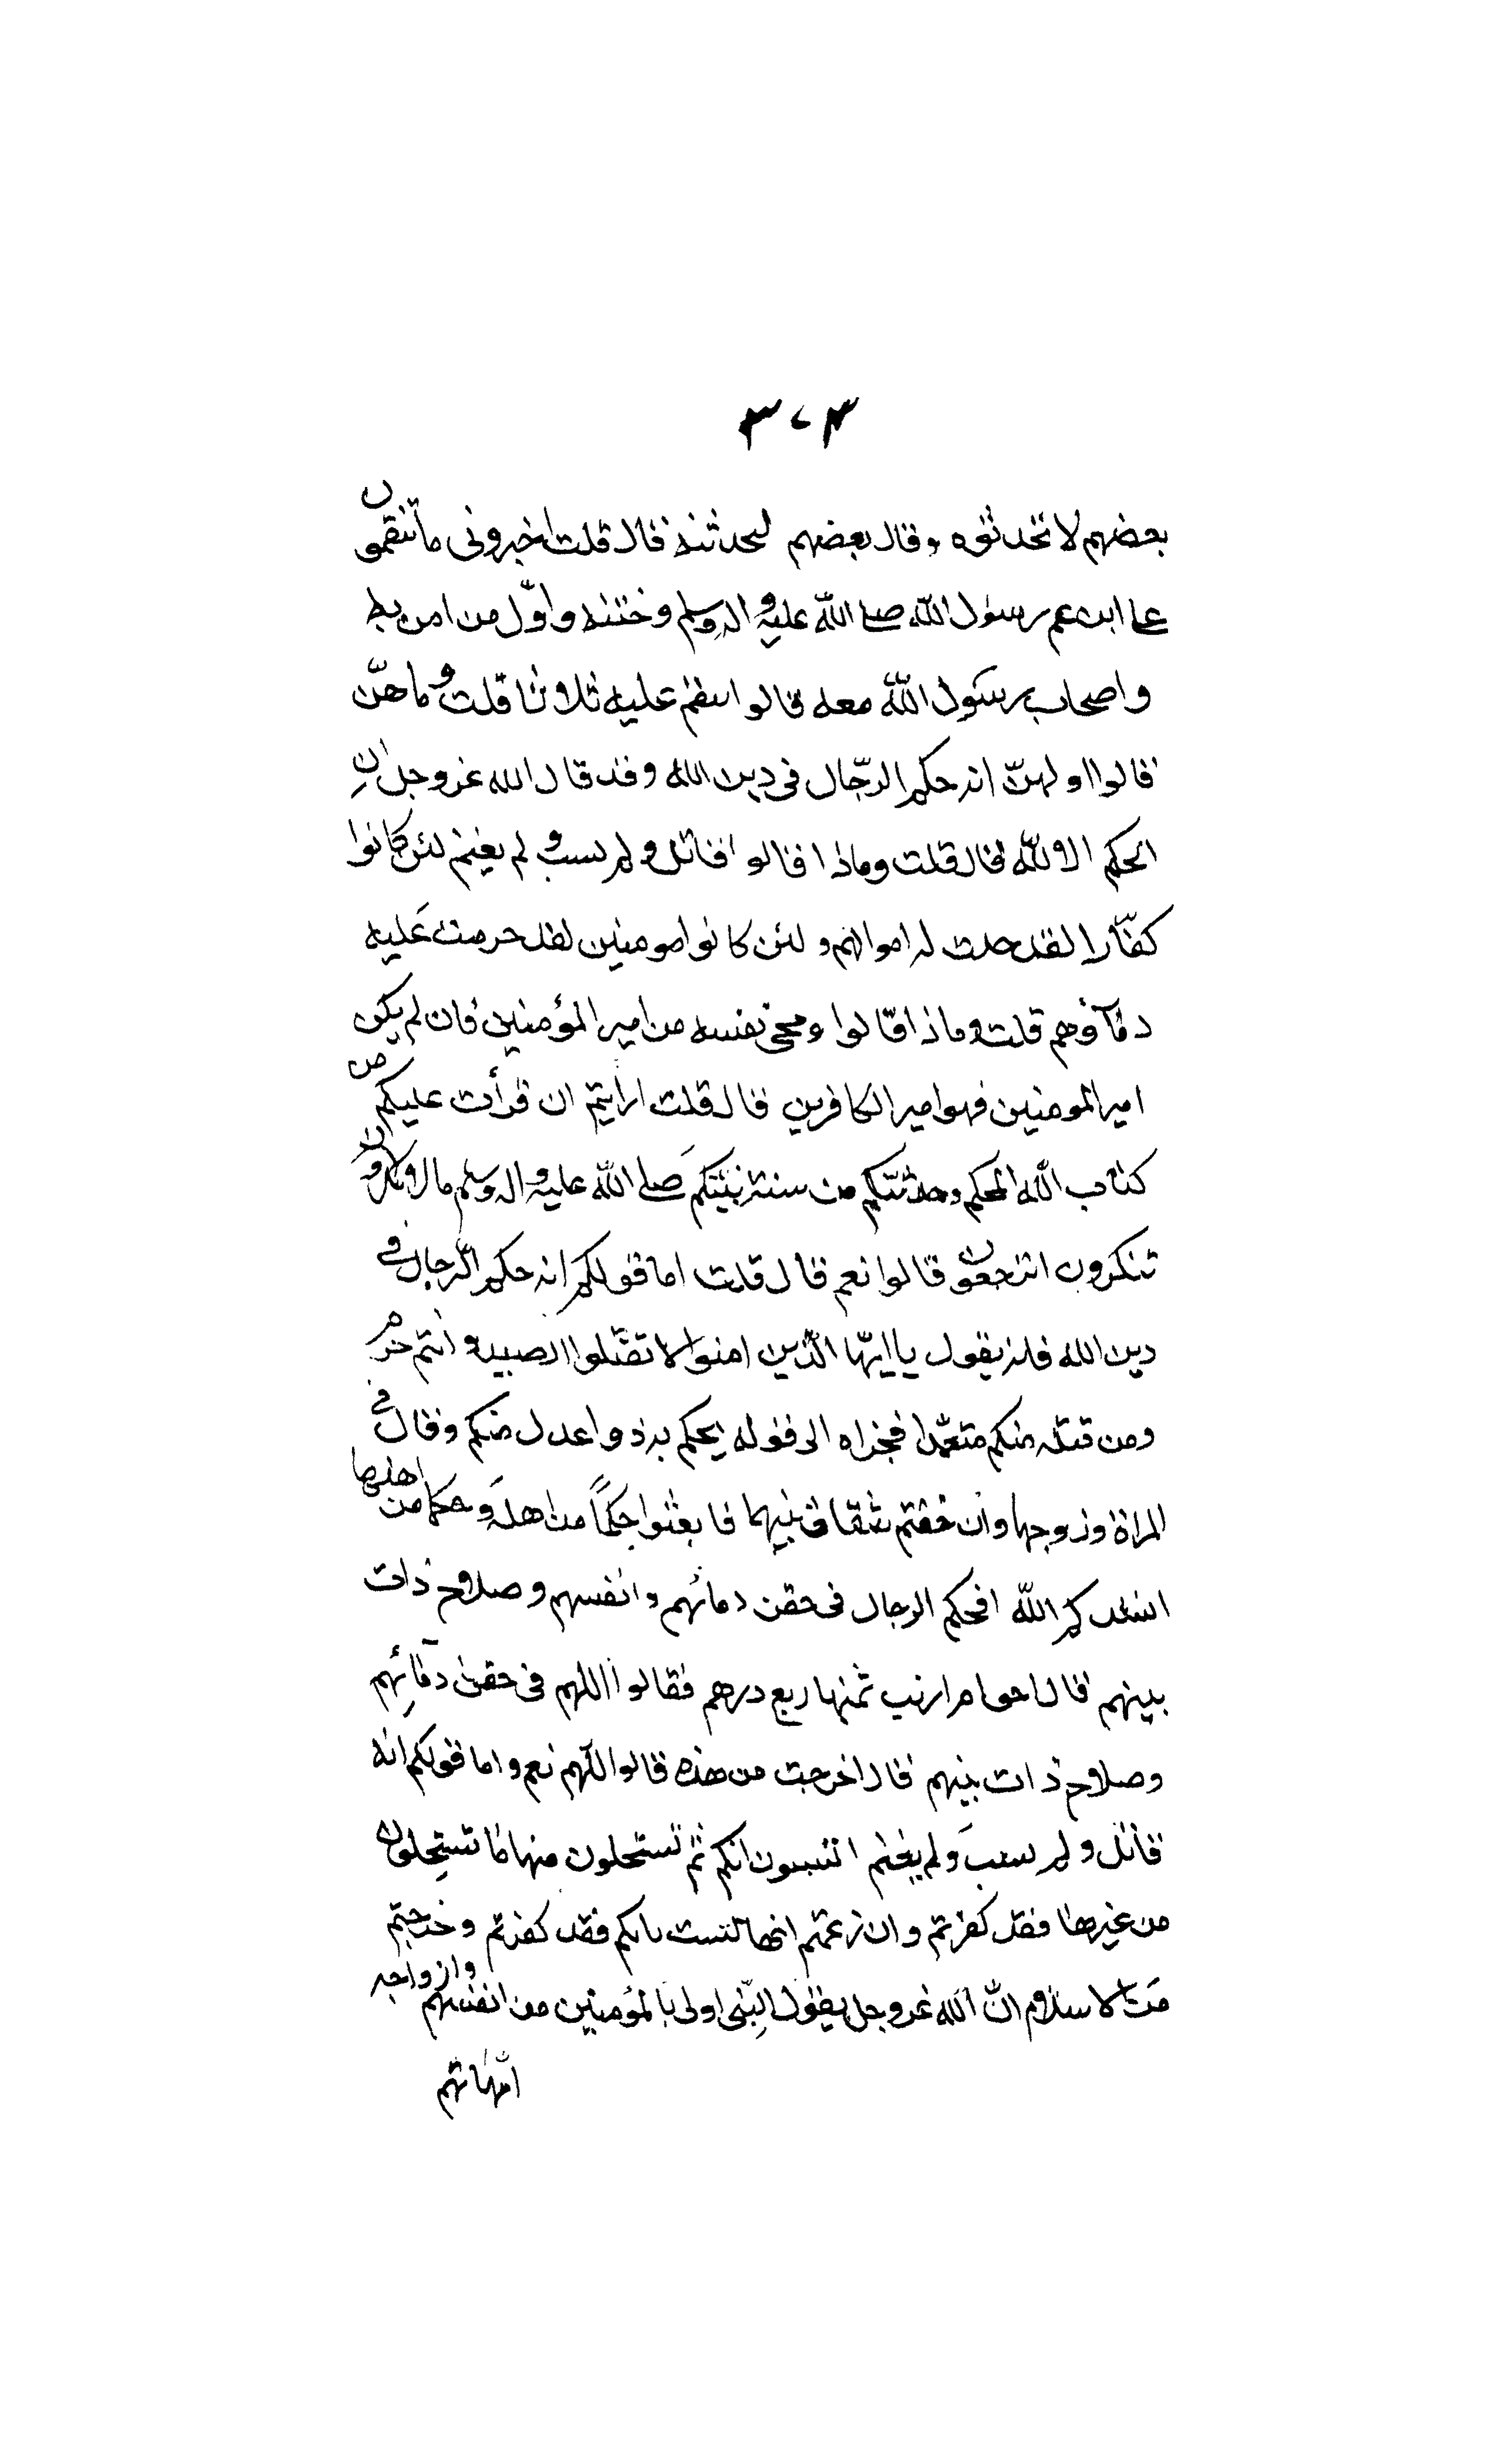 ٣٧٣
بعضهم لا تحدثوه وقال بعضهم لنحدثنه قال قلت اخبروني ما تنقمون
على ابن عم رسول الله صلى الله عليه و اله وسلم وختنه واوّل من امن به
واصحاب رسول الله معه قالوا ننقم عليه ثلاوثا قلت وما هنّ
قالوا اولهنّ انه حكم الرّجال في دين الله وقد قال الله عز وجل اِنِ
الحكم الا لله قال قلت وماذا قالوا قاتل ولم يسب و لم يغنم لئن كانوا
كفّارا لقد حلت له اموالهم ولئن كانوا مومنين لقد حرمت عَليه
دمآؤهم قلت وماذا قالوا ومحى نفسه من امير المؤمنين فان لم يكن
امير المومنين فهو امير الكافرين قال قلت ارايتم ان قرأت عليكم من
كتاب الله المحكم وحدثتكم من سنة نبيّكم صَلى الله عليه و اله وسلم مالا
تنكرون اترجعون قالوا نعم قال قلت اما قولكم انه حكم الرّجال في
دين الله فانه يقول يا ايّها الّذين امنوا لا تقتلوا الصيد و انتم حرم
ومن قتله منكم متعمّدا فجزاه الى قوله يحكم به ذوا عدل منكم وقال في
المراة وزوجها وان خفتم شقاق بينهما فابعثوا حكمًا من اهله وَحكما من اهلها
انشدكم الله افحكم الرجال في حقن دمائهم وانفسهم وصلاح ذات
بينهم قال احق ام ارنب ثمنها ربع درهم فقالوا اللهم في حقن دمآئِهم
وصلاح ذات بينهم قال اخرجت من هذه قالوا اللّهم نعم واما قولكم انه
قاتل ولم يسبَ ولم يغنم اتسبون امّكم ثم تستحلون منها ما تستحلون
من غيرها فقد كفرتم وان زعمتم انها ليست بامكم فقد كفرتم وخرجتم
من الاسلام انّ الله عز وجل يقول النّبي اولى بالمؤمنين من انفسهم وازواجه
امّهاتهم